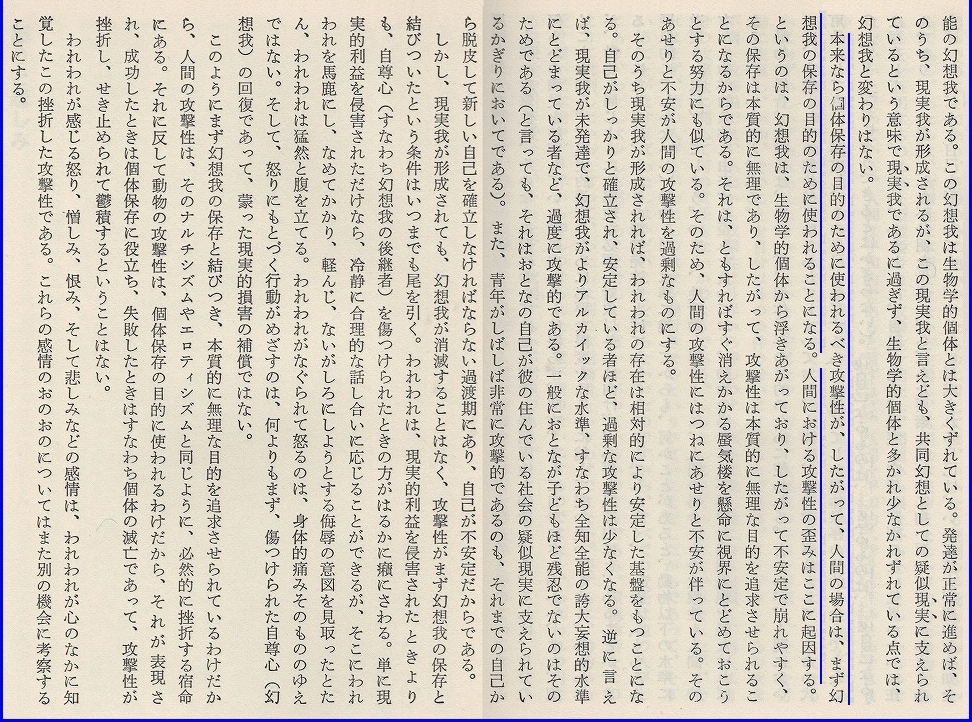 能の幻想我である。この幻想我は生物学的個体とは大きくずれている。発達が正常に進めば、そ
のうち、現実我が形成されるが、この現実我と言えども、共同幻想としての疑似現実に支えられ
ているという意味で現実我であるに過ぎず、生物学的個体と多かれ少なかれずれている点では、
幻想我と変わりはない。
本来なら個体保存の目的のために使われるべき攻撃性が、したがって、人間の場合は、まず幻
想我の保存の目的のために使われることになる。人間における攻撃性の歪みはここに起因する。
というのは、幻想我は、生物学的個体から浮きあがっており、したがって不安定で崩れやすく、
その保存は本質的に無理であり、したがって、攻撃性は本質的に無理な目的を追求させられるこ
とになるからである。それは、ともすればすぐ消えかかる蜃気楼を懸命に視界にとどめておこう
とする努力にも似ている。そのため、人間の攻撃性にはつねにあせりと不安が伴っている。その
あせりと不安が人間の攻撃性を過剰なものにする。
そのうち現実我が形成されれば、われわれの存在は相対的により安定した基盤をもつことにな
る。自己がしっかりと確立され、安定している者ほど、過剰な攻撃性は少なくなる。逆に言え
ば、現実我が未発達で、幻想我がよりアルカイックな水準、すなわち全知全能の誇大妄想的水準
にとどまっている者など、過度に攻撃的である。一般におとなが子どもほど残忍でないのはその
ためである（と言っても、それはおとなの自己が彼の住んでいる社会の疑似現実に支えられてい
るかぎりにおいてである）。また、青年がしばしば非常に攻撃的であるのも、それまでの自己か
ら脱皮して新しい自己を確立しなければならない過渡期にあり、自己が不安定だからである。
しかし、現実我が形成されても、幻想我が消滅することはなく、攻撃性がまず幻想我の保存と
結びついたという条件はいつまでも尾を引く。われわれは、現実的利益を侵害されたときより
も、自尊心（すなわち幻想我の後継者）を傷つけられたときの方がはるかに癪にさわる。単に現
実的利益を侵害されただけなら、冷静に合理的な話し合いに応じることができるが、そこにわれ
われを馬鹿にし、なめてかかり、軽んじ、ないがしろにしようとする侮辱の意図を見取ったとた
ん、われわれは猛然と腹を立てる。われわれがなぐられて怒るのは、身体的痛みそのもののゆえ
ではない。そして、怒りにもとづく行動がめざすのは、何よりもまず、傷つけられた自尊心（幻
想我）の回復であって、蒙った現実的損害の補償ではない。
このようにまず幻想我の保存と結びつき、本質的に無理な目的を追求させられているわけだか
ら、人間の攻撃性は、そのナルチシズムやエロティシズムと同じように、必然的に挫折する宿命
にある。それに反して動物の攻撃性は、個体保存の目的に使われるわけだから、それが表現さ
れ、成功したときは個体保存に役立ち、失敗したときはすなわち個体の滅亡であって、攻撃性が
挫折し、せき止められて鬱積するということはない。
われわれが感じる怒り、憎しみ、恨み、そして悲しみなどの感情は、われわれが心のなかに知
覚したこの挫折した攻撃性である。これらの感情のおのおのについてはまた別の機会に考察する
ことにする。